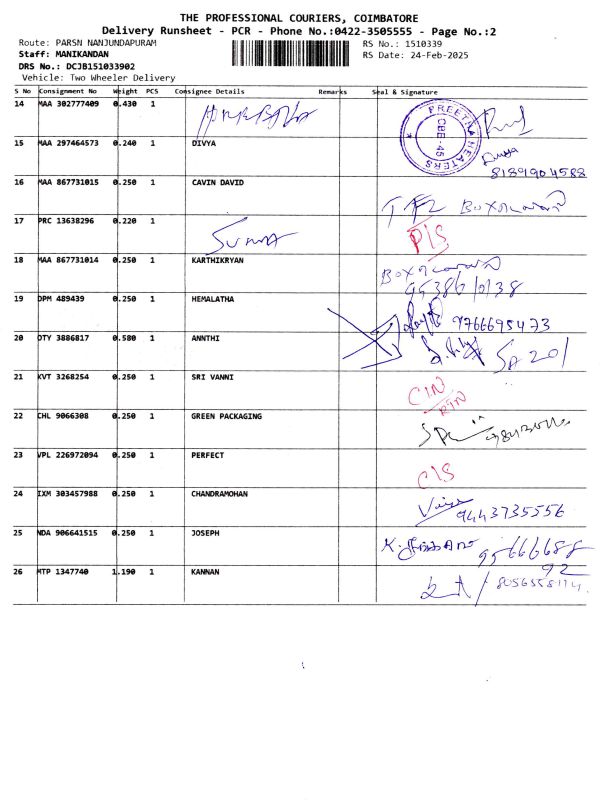 THE PROFESSIONAL COURIERS, COIMBATORE
Delivery Runsheet - PCR - Phone No.:0422-3505555 - Page No.:2
Route: PARSN NANJUNDAPURAM
RS No.: 1510339
Staff: MANIKANDAN
RS Date: 24-Feb-2025
DRS No.: DCJB151033902
Vehicle: Two Wheeler Delivery
S No Consignment No Weight PCS Consignee Details Remarks Seal & Signature
14 MAA 302777409 0.430 1
PREETHA HEATERS CBE-45
15 MAA 297464573 0.240 1 DIVYA Divya
8189904588
16 MAA 867731015 0.250 1 CAVIN DAVID
17 PRC 13638296 0.220 1
18 MAA 867731014 0.250 1 KARTHIKRYAN
19 DPM 489439 0.250 1 HEMALATHA 9766695473
20 DTY 3886817 0.580 1 ANNTHI
21 KVT 3268254 0.250 1 SRI VANNI
22 CHL 9066308 0.250 1 GREEN PACKAGING
23 VPL 226972094 0.250 1 PERFECT
24 IXM 303457988 0.250 1 CHANDRAMOHAN
9443735556
25 NDA 906641515 0.250 1 JOSEPH
95666688
92
26 MTP 1347740 1.190 1 KANNAN